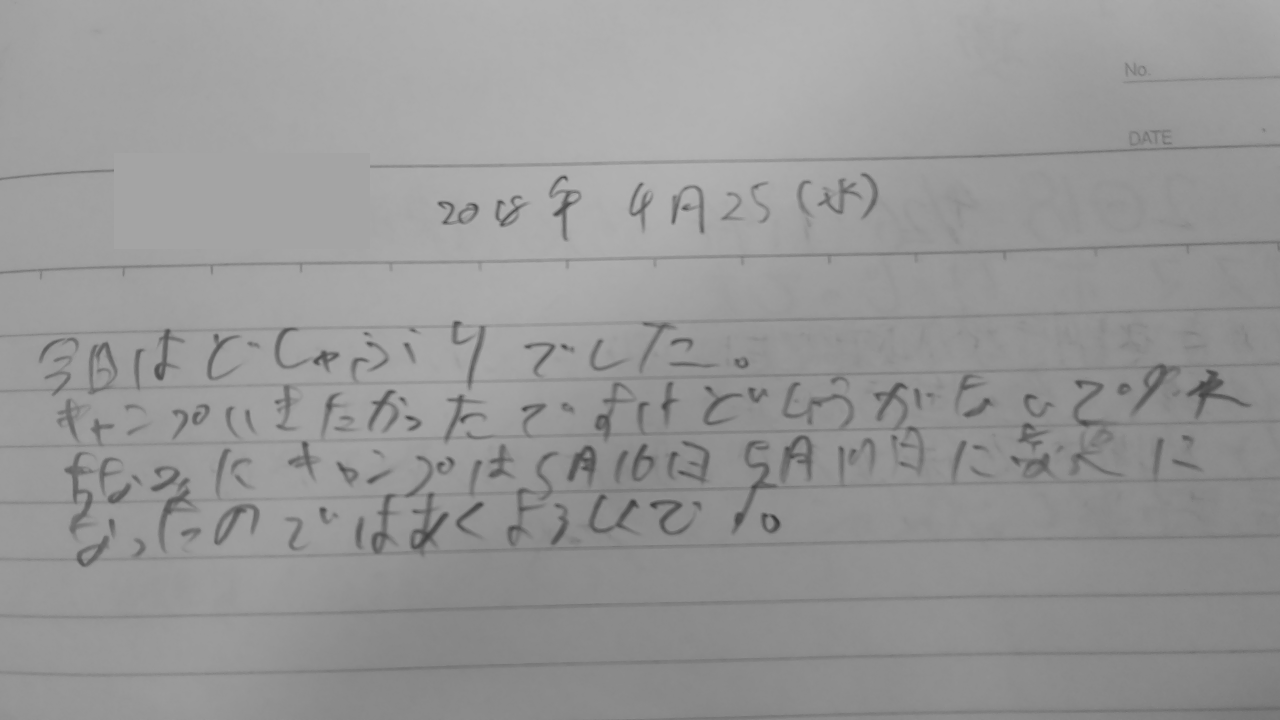 No.
DATE
2018年 4月25(水)
今日はどしゃぶりでした。
キャンプいきたかったですけどしょうがないので
にキャンプは5月16日5月17日に変更に
なったのではあくよろしくです。